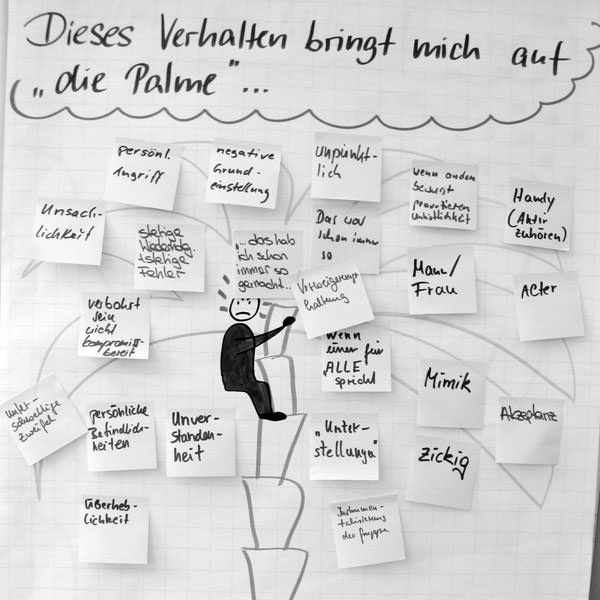 Dieses Verhalten bringt mich auf
„die Palme"...
persönl.
Angriff
negative
Grund-
einstellung
unpünkt-
lich
wenn andere
bewusst
provozieren
Unhöflichkeit
Handy
(Aktiv
zuhören)
Unsach-
lichkeit
stetige
Wiederholg.
+ stetige
Fehler
„...das hab
ich schon
immer so
gemacht...
Das war
schon immer
so
Verweigerungs-
haltung
Mann/
Frau
Alter
verbohrt
sein
nicht
kompromiss-
bereit
wenn
einer für
„ALLE"
spricht
Mimik
Akzeptanz
unter-
schwellige
Zweifel
persönliche
Befindlich-
keiten
Unver-
standen-
heit
„Unter-
stellungen"
Zickig
Überheb-
lichkeit
Instrumen-
talisierung
der Gruppe